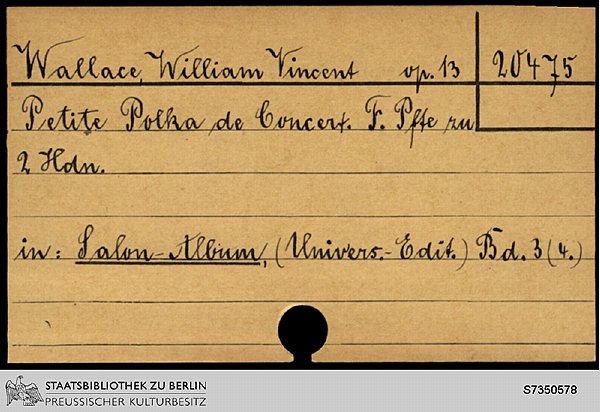 Wallace, William Vincent op. 13 20475
Petite Polka de Concert. F. Pfte zu
2 Hdn.
in: Salon-Album, (Univers.-Edit.) Bd. 3 (4.)
STAATSBIBLIOTHEK ZU BERLIN
PREUSSISCHER KULTURBESITZ
S7350578